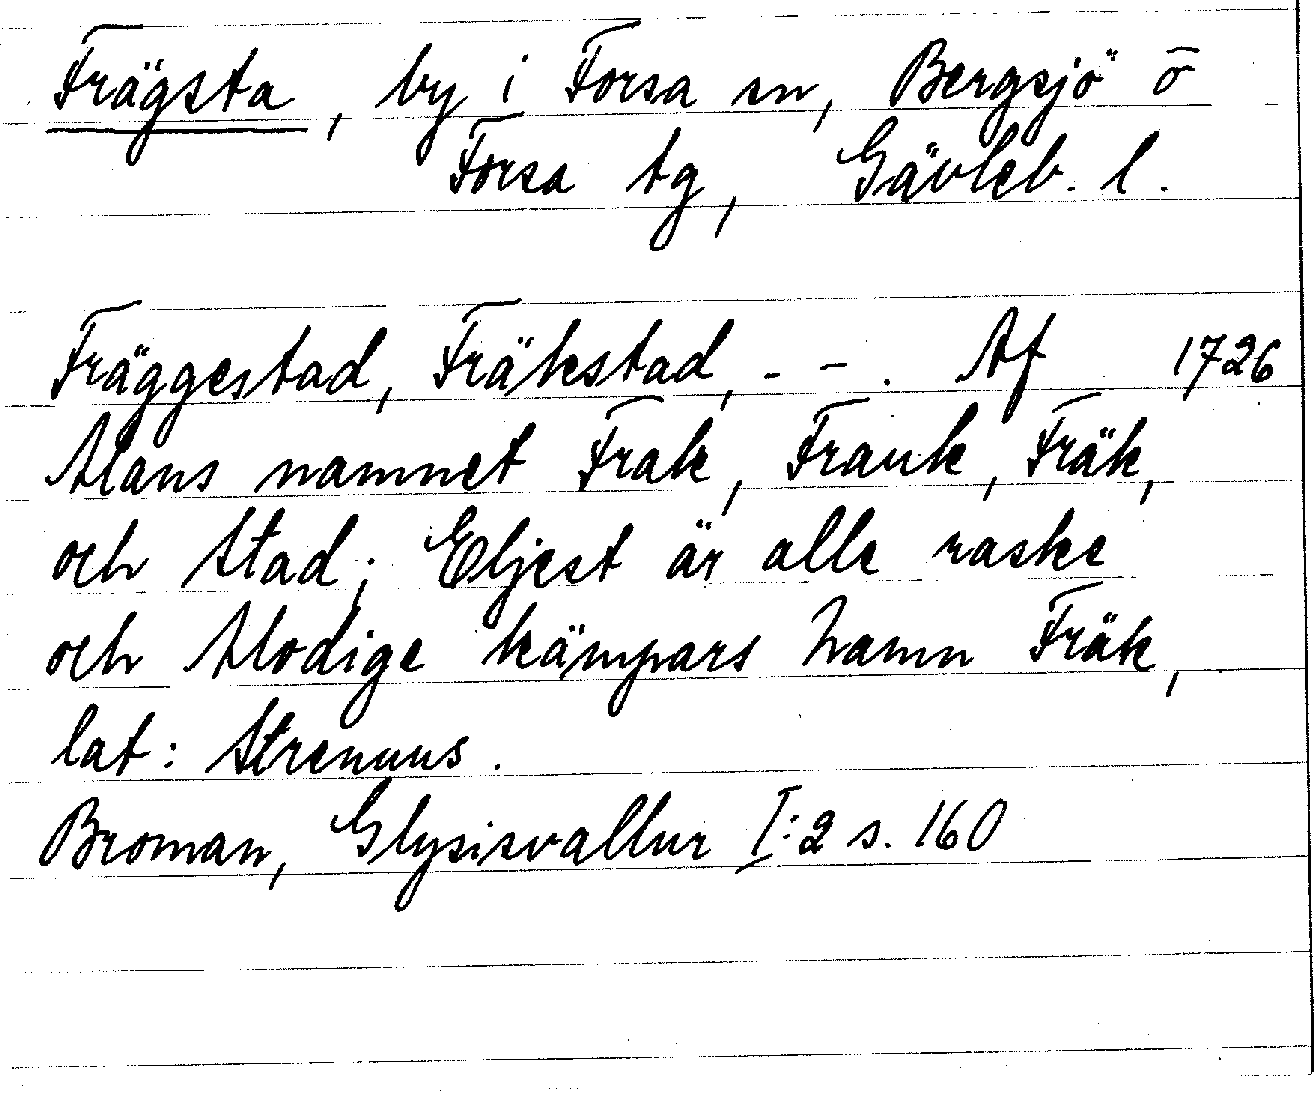 Frägsta, by i Forsa sn, Bergsjö o
Forsa tg, Gävleb. l.
Fräggestad, Fräkstad, - - . Af 1726
Mans namnet Frak, Frank, Fräk,
och Stad; Eljest är alle raske
och Modige kämpars Namn Fräk,
lat: Strenuus.
Broman, Glysisvallur I:2 s. 160